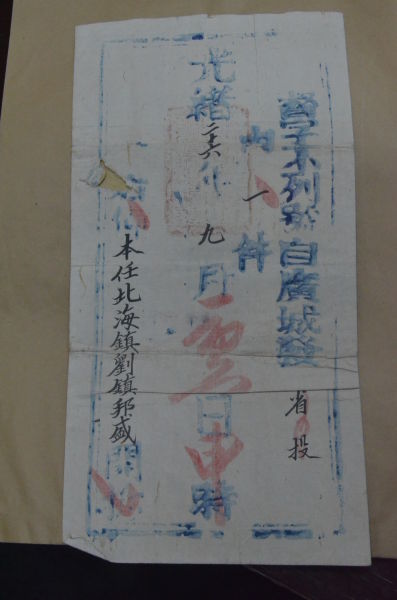 督字不列號自廣城發省投
內一件
光緒二十六年九月日申時
本任北海鎮劉鎮邦盛開拆